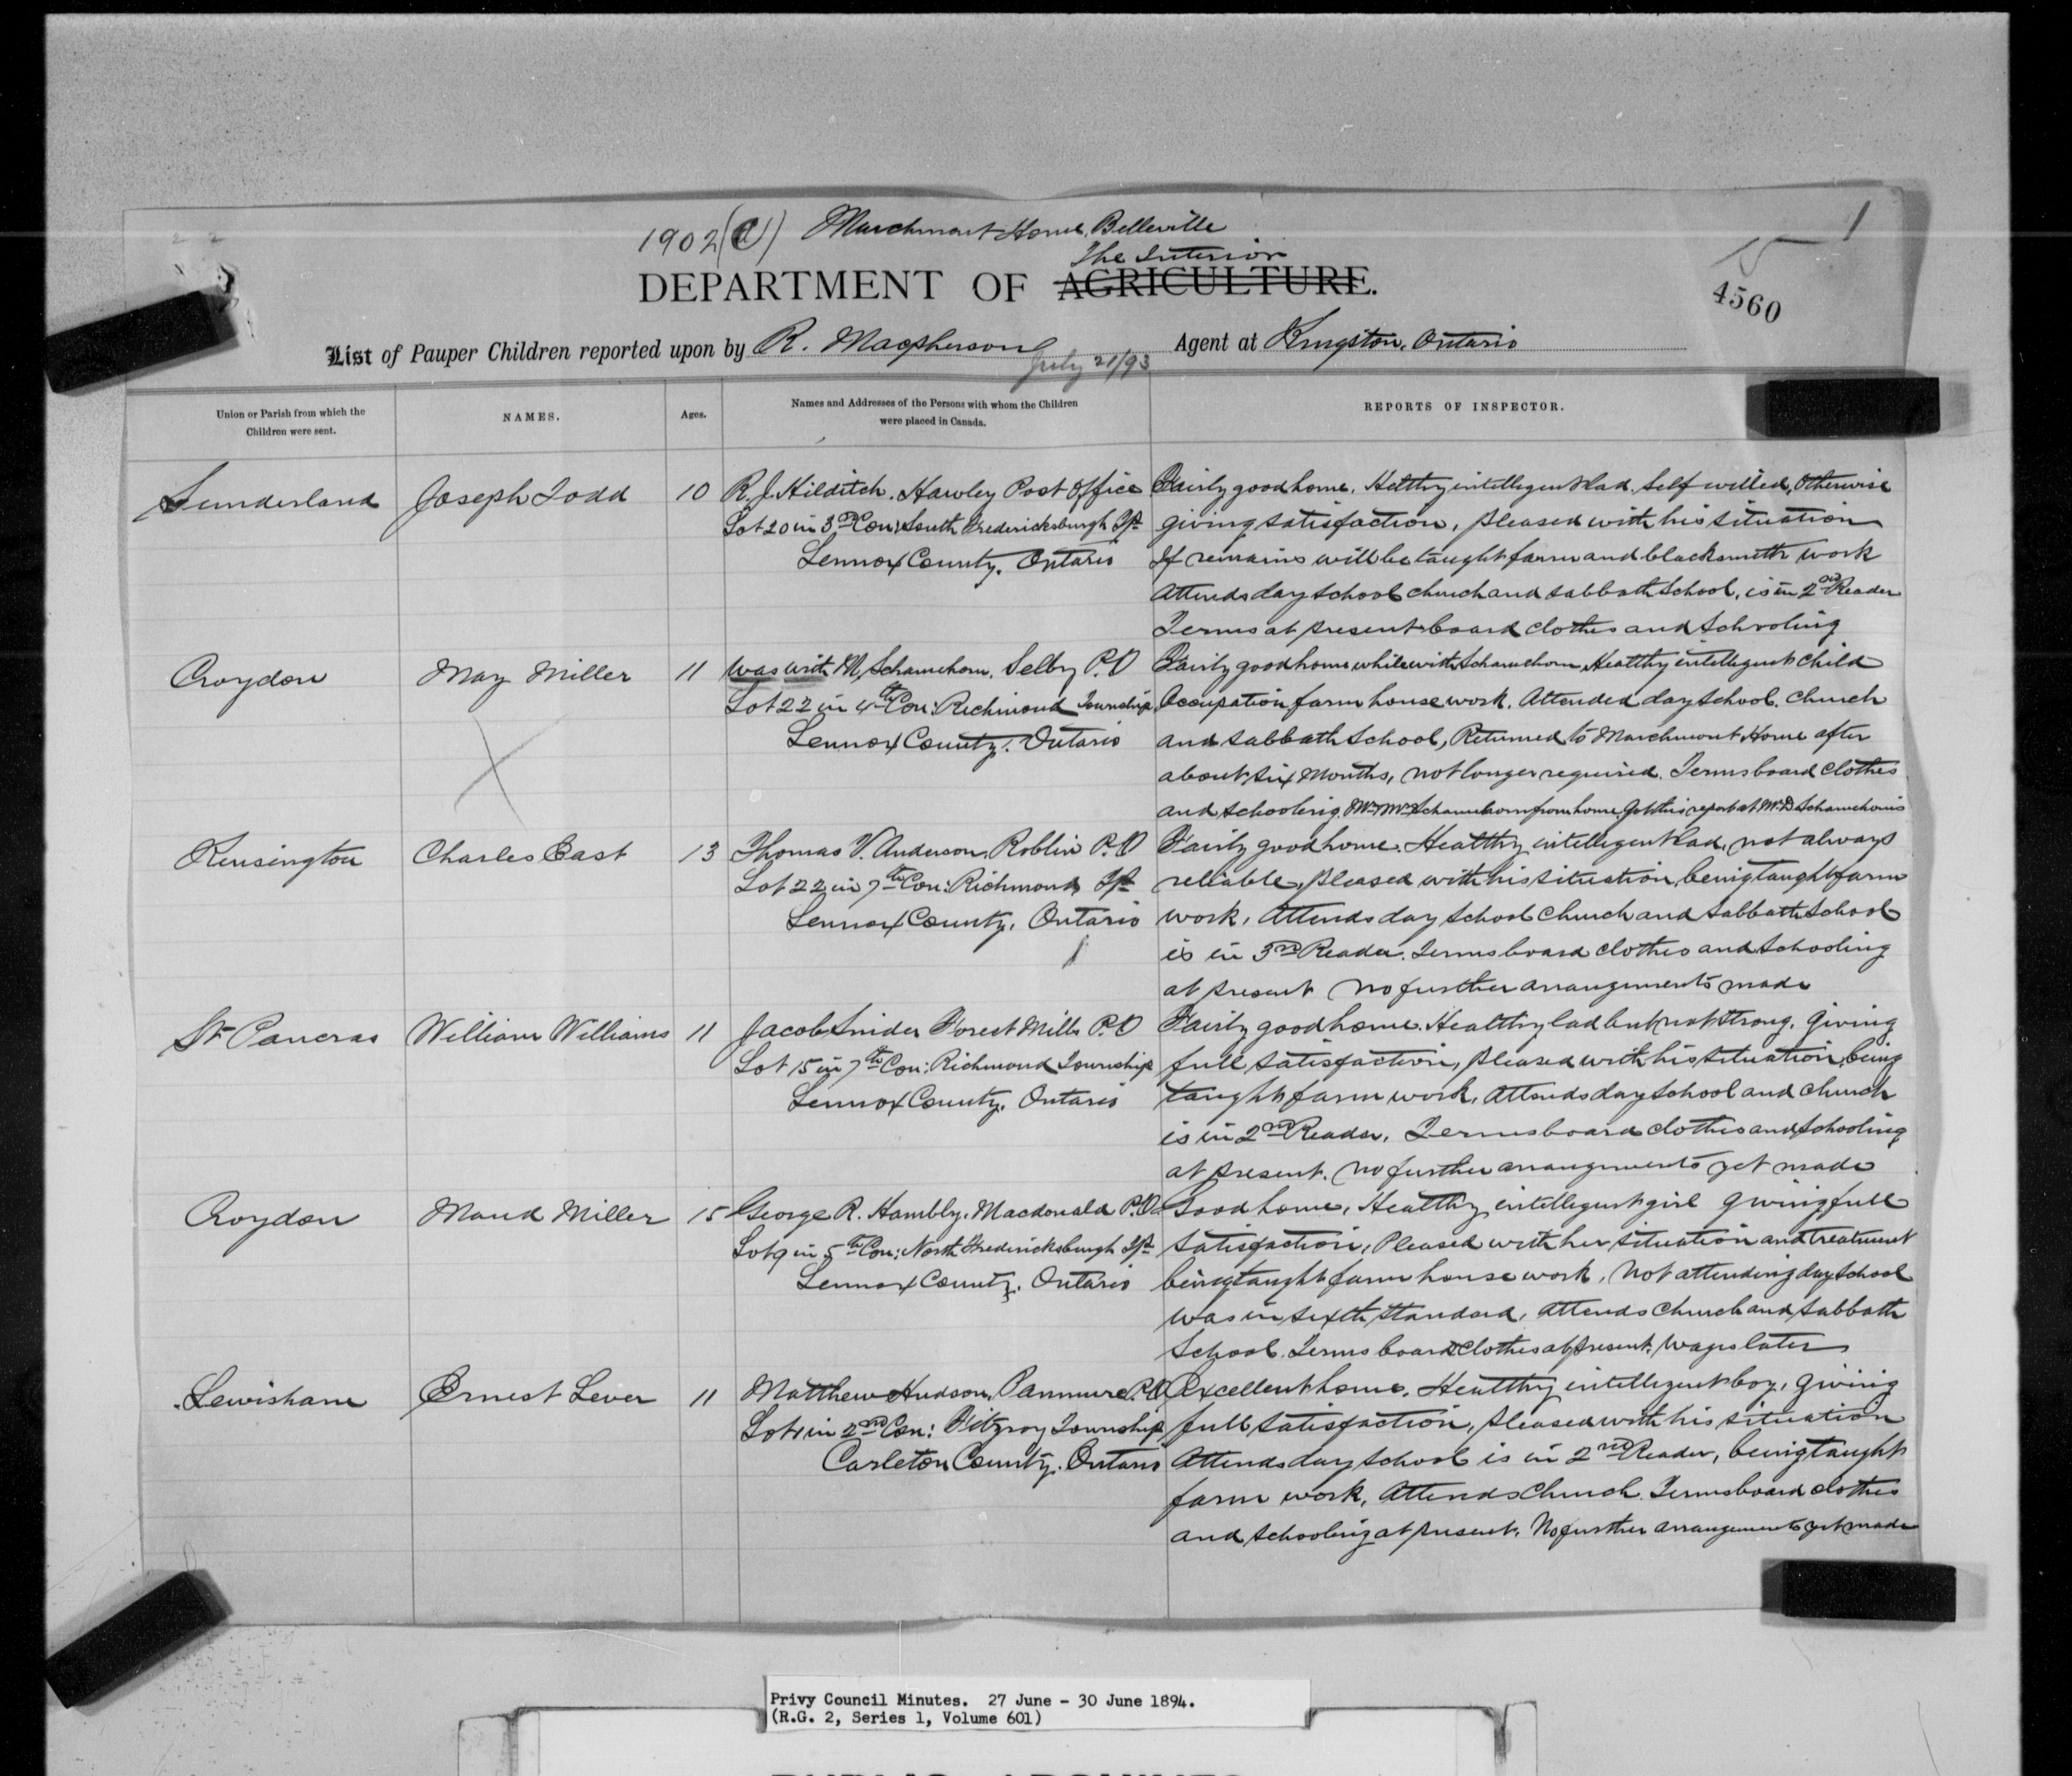 1902 (a) Marchmont Home, Belleville
1
The Interior
DEPARTMENT OF AGRICULTURE.
4560
List of Pauper Children reported upon by R. Macpherson Agent at Kingston, Ontario
July 21/93
Union or Parish from which the Children were sent.
NAMES.
Ages.
Names and Addresses of the Persons with whom the Children were placed in Canada.
REPORTS OF INSPECTOR.
Sunderland Joseph Todd 10 R. J. Hilditch. Hawley Post Office Fairly good home. Helthy intelligent lad. Self willed, Otherwise
Lot 20 in 3rd Con: South Fredericksburgh Tp. giving satisfaction, pleased with his situation
Lennox County, Ontario If remains will be taught farm and blacksmith work
Attends day school church and sabbath school, is in 2nd Reader
Terms at present board clothes and schooling
Croydon May Miller 11 Was with M. Schamehorn, Selby P.O Fairly good home while with Schamehorn Healthy intelligent child
Lot 22 in 4th Con: Richmond Township Occupation farm house work. Attended day school. Church
Lennox County, Ontario and sabbath school, Returned to Marchmont Home after
about six months, not longer required. Terms board clothes
and schooling. Mr Mrs Schamehorn from home. Got this report at Mr D Schamehorn's
Kensington Charles East 13 Thomas V. Anderson, Roblin P.O Fairly good home. Healthy intelligent lad, not always
Lot 22 in 7th Con: Richmond Tp. reliable, pleased with his situation, being taught farm
Lennox County, Ontario work, Attends day school church and sabbath school
is in 3rd Reader. Terms board clothes and schooling
at present no further arrangements made
St Pancras William Williams 11 Jacob Snider Forest Mills P.O Fairly good home. Healthy lad but not strong. Giving
Lot 15 in 7th Con: Richmond Township full satisfaction, pleased with his situation, being
Lennox County, Ontario taught farm work, Attends day school and church
is in 2nd Reader, Terms board clothes and schooling
at present. No further arrangements yet made
Croydon Maud Miller 15 George R. Hambly. Macdonald P.O. Good home, Healthy intelligent girl giving full
Lot 9 in 5th Con: North Fredericksburgh Tp. satisfaction, Pleased with her situation and treatment
Lennox County, Ontario being taught farm house work, Not attending day school
was in sixth standard, attends church and sabbath
School. Terms board & clothes at present, wages later
Lewisham Ernest Lever 11 Matthew Hudson, Panmure P.O Excellent home. Healthy intelligent boy, giving
Lot 1 in 2nd Con: Fitzroy Township full satisfaction, pleased with his situation
Carleton County, Ontario Attends day school is in 2nd Reader, being taught
farm work, Attends Church. Terms board clothes
and schooling at present. No further arrangements yet made
Privy Council Minutes. 27 June - 30 June 1894.
(R.G. 2, Series 1, Volume 601)